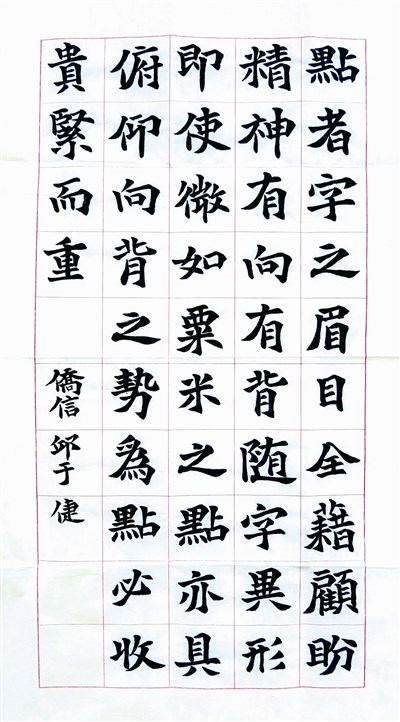 點者字之眉目全藉顧盼
精神有向有背随字異形
即使微如粟米之點亦具
俯仰向背之勢為點必收
貴緊而重
僑信 邱于倢